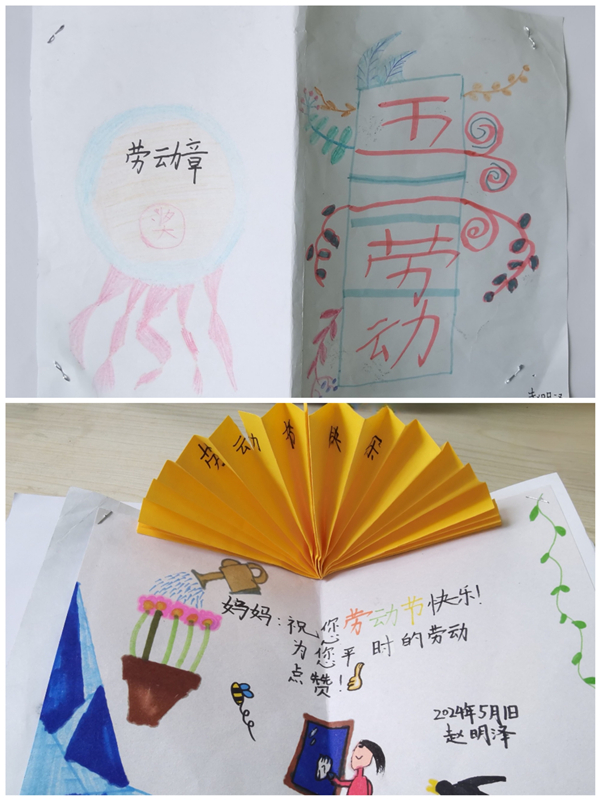 劳动章
奖
五
一
劳
动
劳动节快乐
妈妈:祝您劳动节快乐!
为您平时的劳动
点赞!
2024年5月1日
赵明泽